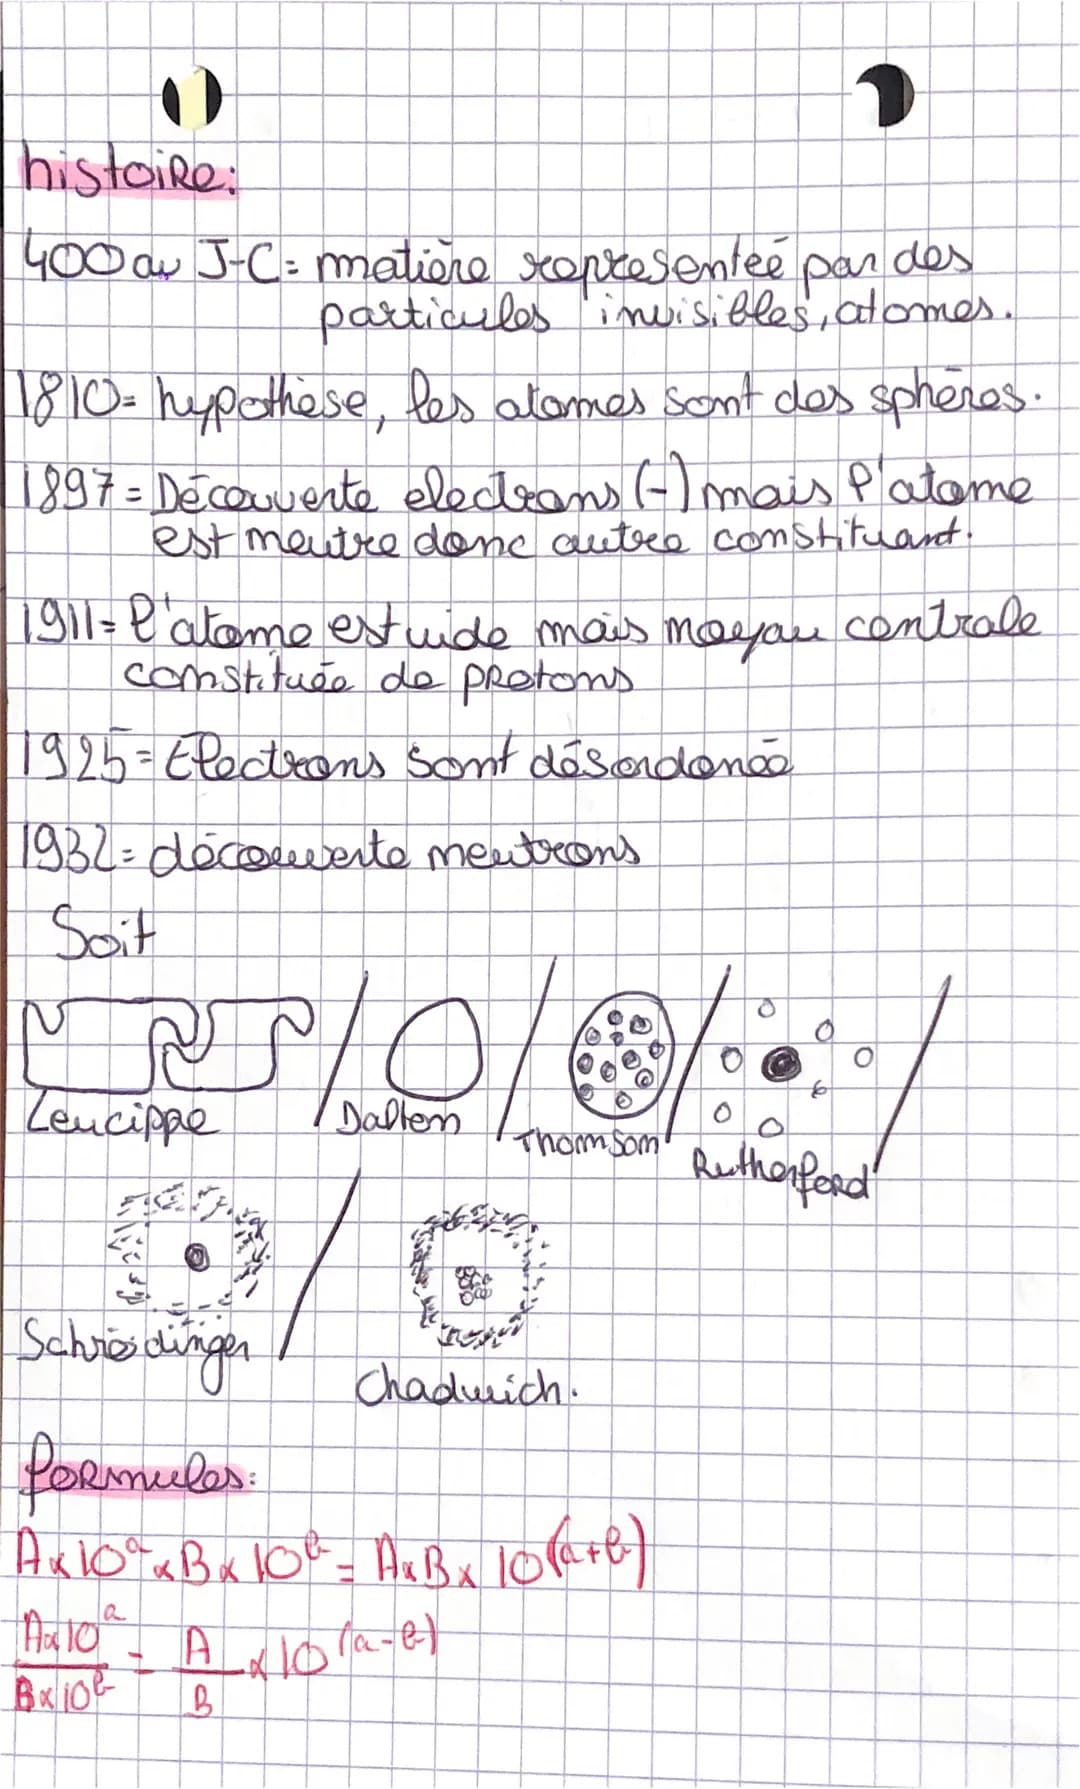 histoire:
400 av J-C = matière representeé par des
particules invisibles, atomes.
1810 = hypothèse, les atomes sont des sphères.
1897 = Découverte electrons (-) mais l'atome
est neutre donc autre constituant.
1911 = l'atome est vide mais noyau centrale
constituée de protons
1925 = Electrons sont désordonée
1932 = découverte neutrons
Soit
Leucippe / Dalton / Thomson / Rutherford /
Schrödinger / Chadwich.
formules:
A x 10^a x B x 10^b = A x B x 10^(a+b)
A x 10^a / B x 10^b = A / B x 10^(a-b)